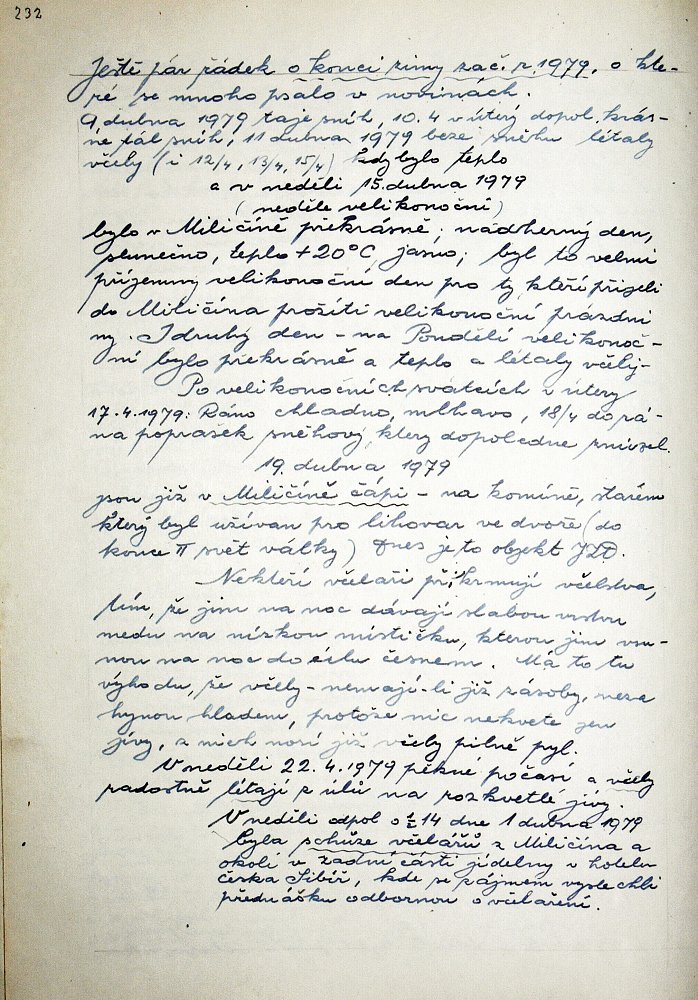 232
Ještě pár řádek o konci zimy zač. r. 1979, o kte-
ré se mnoho psalo v novinách.
9 dubna 1979 taje sníh, 10.4 v úterý dopol. krás-
ně tál sníh, 11 dubna 1979 beze sněhu létaly
včely (i 12/4, 13/4, 15/4) kdy bylo teplo
a v neděli 15. dubna 1979
(neděle velikonoční)
bylo v Miličíně překrásně; nádherný den,
slunečno, teplo +20°C, jasno; byl to velmi
příjemný velikonoční den pro ty, kteří přijeli
do Miličína prožíti velikonoční prázdni
ny. I druhý den - na Pondělí velikonoč-
ní bylo překrásně a teplo a létaly včely -
Po velikonočních svátcích v úterý
17.4.1979: Ráno chladno, mlhavo, 18/4 do rá-
na poprašek sněhový, který dopoledne zmizel.
19. dubna 1979
jsou již v Miličíně čápi - na komíně, starém
který byl užíván pro lihovar ve dvoře (do
konce II svět války) Dnes je to objekt JZD.
Někteří včelaři přikrmují včelstva,
tím, že jim na noc dávají slabou vrstvu
medu na nízkou mističku, kterou jim vsu-
nou na noc do úlu česnem. Má to tu
výhodu, že včely - nemají-li již zásoby, neza
hynou hladem, protože nic nekvete jen
jívy, z nich nosí již včely pilně pyl.
V neděli 22.4.1979 pěkné počasí a včely
radostně létají z úlů na rozkvetlé jívy.
V neděli odpol o ½ 14 dne 1 dubna 1979
byla schůze včelařů z Miličína a
okolí v zadní části jídelny v hotelu
česká Sibiř, kde se zájmem vyslechli
přednášku odbornou o včelaření.